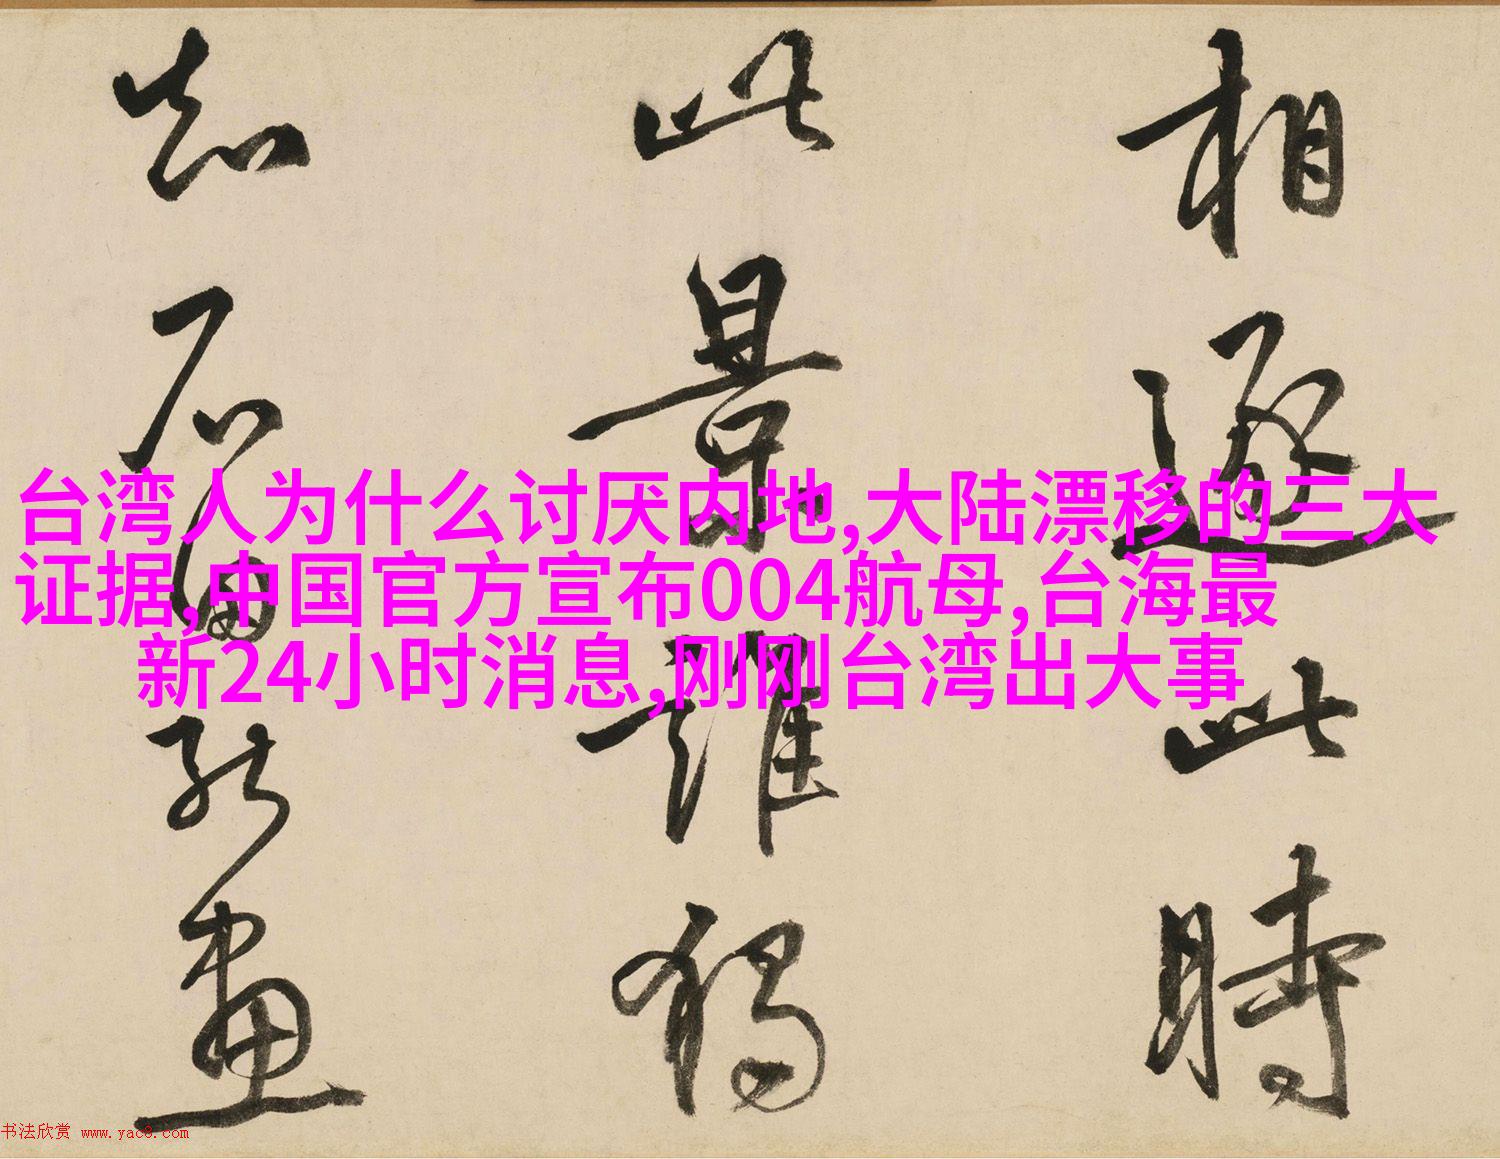 相逐此時
此景誰獨
知石田能畫
台湾人为什么讨厌内地,大陆漂移的三大
证据,中国官方宣布004航母,台海最
新24小时消息,刚刚台湾出大事
书法欣赏 www.yac8.com